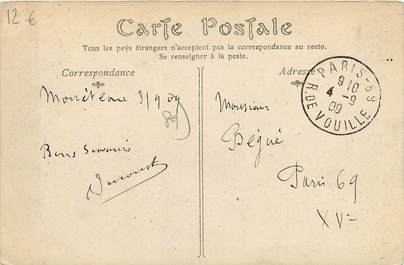 12 €
Carte Postale
Tous les pays étrangers n'acceptent pas la correspondance au recto.
Se renseigner à la poste.
Correspondance
Adresse
PARIS-69
9 10
4 -9
09
R. DE VOUILLE
3/9 09
Monsieur
Bégué
Bons Souvenirs
Paris 69
XVe